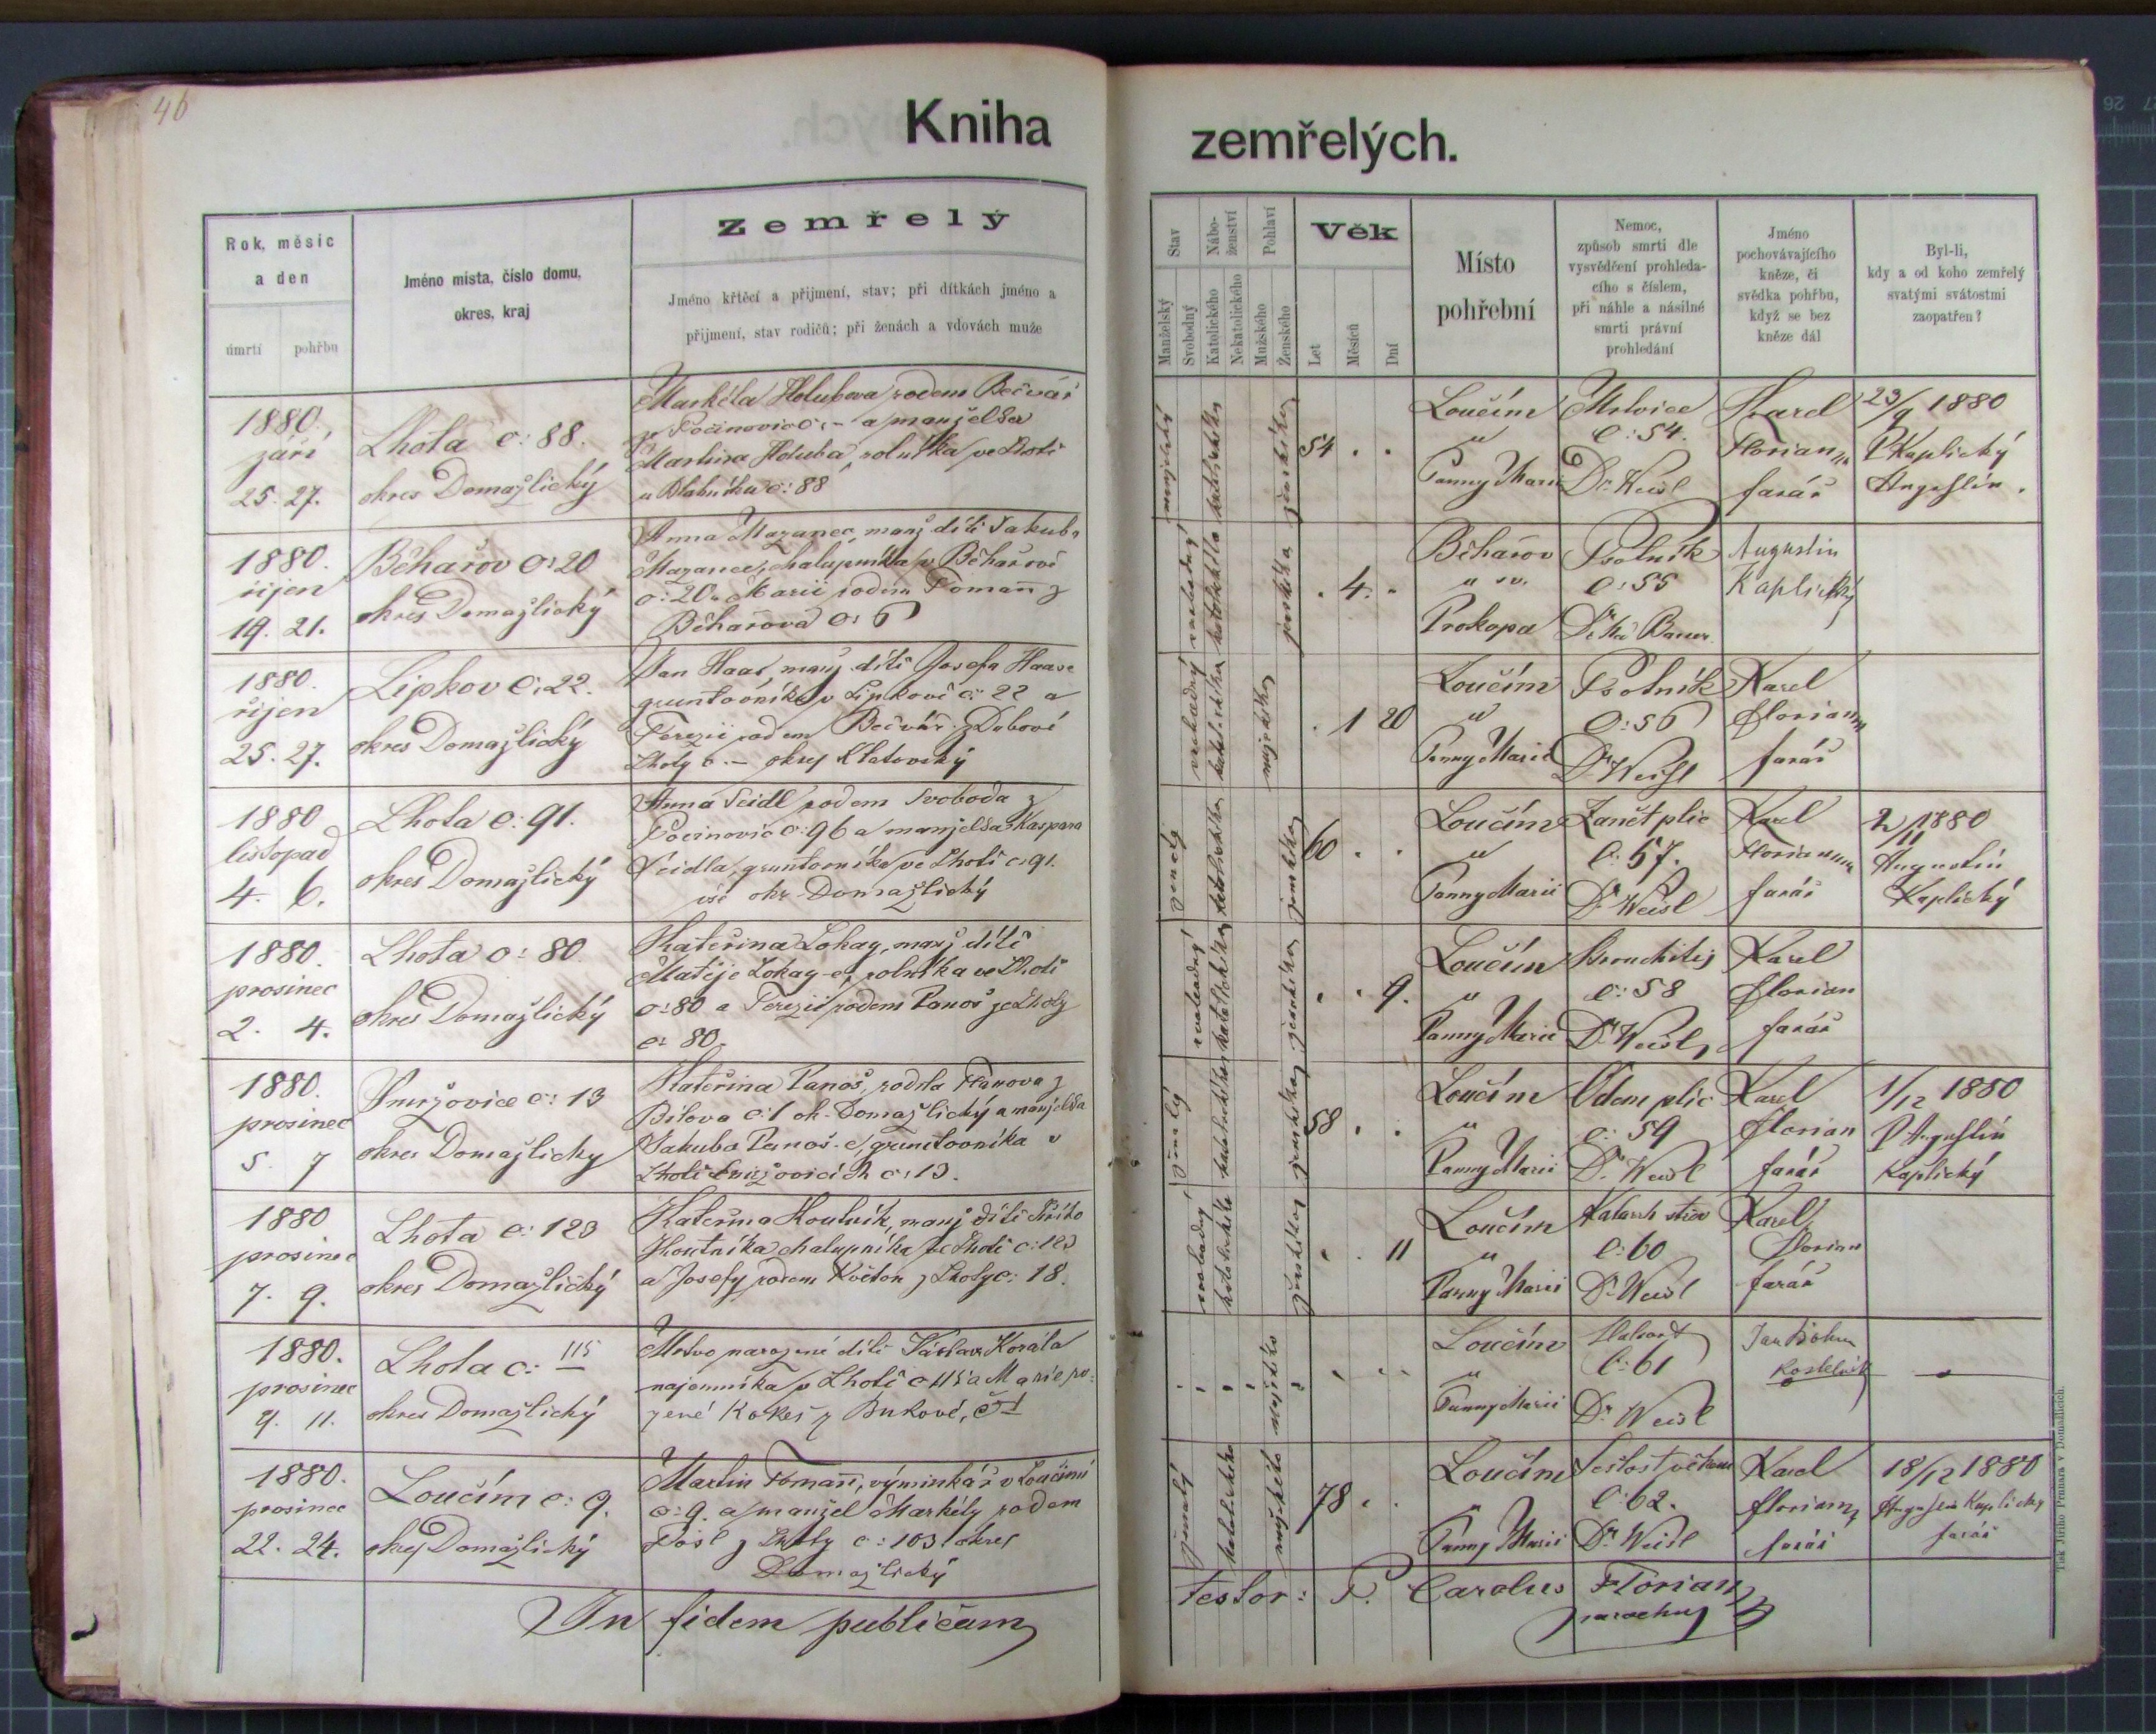 46
Kniha
zemřelých.
Rok, měsíc
a den
úmrtí
pohřbu
Jméno místa, číslo domu,
okres, kraj
Zemřelý
Jméno křtěcí a přijmení, stav; při dítkách jméno a
přijmení, stav rodičů; při ženách a vdovách muže
Stav
Manželský
Svobodný
Nábo-
ženství
Katolického
Nekatolického
Pohlaví
Mužského
Ženského
Věk
Let
Měsíců
Dní
Místo
pohřební
Nemoc,
způsob smrti dle
vysvědčení prohleda-
cího s číslem,
při náhle a násilné
smrti právní
prohledání
Jméno
pochovávajícího
kněze, či
svědka pohřbu,
když se bez
kněze dál
Byl-li,
kdy a od koho zemřelý
svatými svátostmi
zaopatřen?
1880.
září
25. 27.
Lhota č: 88.
okres Domažlický
Markéta Holubova rodem Bečvář
z Počinovic č. – a manželka
Martina Holuba, rolníka ve Lhotě
č: 88
54 . .
Loučím
u
Panny Marie
Mrtvice
č: 54.
Dr. Weisl
Karel
Florian
farář
23/9 1880
P. Kaplický
Augustin.
1880.
říjen
19. 21.
Běhařov č: 20
okres Domažlický
Anna Mazanec, manž. dítě Jakuba
Mazance, chalupníka v Běhařově
č: 20 a Marie rodem Tomann z
Běhařova č: 6
. 4. .
Běhařov
u sv.
Prokopa
Psotník
č: 55
Augustin
Kaplický
1880.
říjen
25. 27.
Lipkov č: 22.
okres Domažlický
Jan Haas, manž. dítě Josefa Haase
gruntovníka v Lipkově č: 22 a
Terezie rodem Bečvář z Dubové
Lhoty č. – okres Klatovský
. 1 20
Loučím
u
Panny Marie
Psotník
č: 56
Dr. Weisl
Karel
Florian
farář
1880
listopad
4. 6.
Lhota č: 91.
okres Domažlický
Anna Seidl rodem Svoboda z
Počinovic č: 96 a manželka Kaspara
Seidla, gruntovníka ve Lhotě č: 91.
okr. Domažlický
60 . .
Loučím
u
Panny Marie
Zánět plic
č: 57.
Dr. Weisl
Karel
Florian
farář
2/11 1880
Augustin
Kaplický
1880.
prosinec
2. 4.
Lhota č: 80.
okres Domažlický
Kateřina Lokay, manž. dítě
Matěje Lokay-e, rolníka ve Lhotě
č: 80 a Terezie rodem Panoš ze Lhoty
č: 80.
. . 9.
Loučím
u
Panny Marie
Bronchitis
č: 58
Dr. Weisl
Karel
Florian
farář
1880.
prosinec
5. 7
Smržovice č: 13
okres Domažlický
Kateřina Panoš, rodem z
č: 1 ok. Domažlický a manželka
Jakuba Panoš-e, gruntovníka v
Lhotě Smržovicích č: 13.
58 . .
Loučím
u
Panny Marie
Odem plic
č: 59
Dr. Weisl
Karel
Florian
farář
1/12 1880
P. Augustin
Kaplický
1880
prosinec
7. 9.
Lhota č: 123
okres Domažlický
Kateřina Koutník, manž. dítě Jiřího
Koutníka chalupníka ve Lhotě č: 123
a Josefy rodem Květon z Lhoty č: 18.
. . 11
Loučím
u
Panny Marie
Katarrh střev
č: 60
Dr. Weisl
Karel
Florian
farář
1880.
prosinec
9. 11.
Lhota č: 115
okres Domažlický
Mrtvo narozené dítě Václava Korála
najemníka v Lhotě č 115 a Marie ro-
zené Kokeš z Bukové, č 1
Loučím
u
Panny Marie
č: 61
Dr. Weisl
Jan Böhm
kostelník
1880.
prosinec
22. 24.
Loučím č: 9.
okres Domažlický
Martin Tomann, výminkář v Loučimi
č: 9. a manžel Markéty rodem
z Lhoty č: 103 okres
Domažlický
78 . .
Loučím
u
Panny Marie
Sešlost věkem
č: 62.
Dr. Weisl
Karel
Florian
farář
18/12 1880
Augustin Kaplický
farář
In fidem publicam
Testor: P. Carolus Florian
parochus
Tisk Jiřího Prunara v Domažlicích.